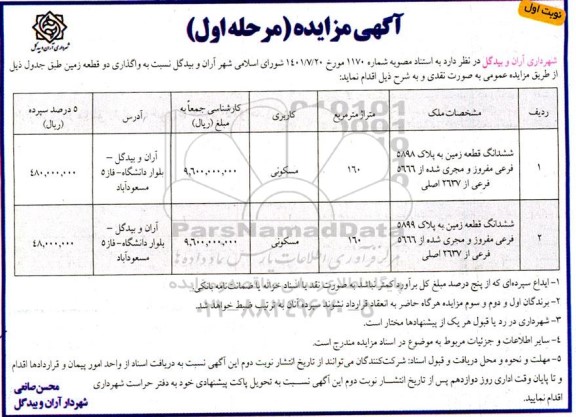 نوبت اول
آگهی مزایده (مرحله اول)
شهرداری آران و بیدگل
شهرداری آران و بیدگل در نظر دارد به استناد مصوبه شماره ۱۱۷۰ مورخ ۱۴۰۱/۷/۲۰ شورای اسلامی شهر آران و بیدگل نسبت به واگذاری دو قطعه زمین طبق جدول ذیل
از طریق مزایده عمومی به صورت نقدی و به شرح ذیل اقدام نماید:
ردیف مشخصات ملک متراژ مترمربع کاربری کارشناسی جمعاً به مبلغ (ریال) آدرس ۵ درصد سپرده (ریال)
۱ ششدانگ قطعه زمین به پلاک ۵۸۹۸ فرعی مفروز و مجزی شده از ۵۶۶۶ فرعی از ۲۶۳۷ اصلی ۱۶۰ مسکونی ۹,۶۰۰,۰۰۰,۰۰۰ آران و بیدگل – بلوار دانشگاه– فاز ۵ مسعودآباد ۴۸۰,۰۰۰,۰۰۰
۲ ششدانگ قطعه زمین به پلاک ۵۸۹۹ فرعی مفروز و مجزی شده از ۵۶۶۶ فرعی از ۲۶۳۷ اصلی ۱۶۰ مسکونی ۹,۶۰۰,۰۰۰,۰۰۰ آران و بیدگل – بلوار دانشگاه– فاز ۵ مسعودآباد ۴۸,۰۰۰,۰۰۰
ParsNamadData
۱– ایداع سپرده‌ای که از پنج درصد مبلغ کل برآورد کمتر نباشد به صورت نقد یا اسناد خزانه یا ضمانت‌نامه بانکی
۲– برندگان اول و دوم و سوم مزایده هرگاه حاضر به انعقاد قرارداد نشوند سپرده آنان به ترتیب ضبط خواهد شد.
۳– شهرداری در رد یا قبول هر یک از پیشنهادها مختار است.
۴– سایر اطلاعات و جزئیات مربوط به موضوع در اسناد مزایده مندرج است.
۵– مهلت و نحوه و محل دریافت و قبول اسناد: شرکت‌کنندگان می‌توانند از تاریخ انتشار نوبت دوم این آگهی نسبت به دریافت اسناد از واحد امور پیمان و قراردادها اقدام
و تا پایان وقت اداری روز دوازدهم پس از تاریخ انتشار نوبت دوم این آگهی نسبت به تحویل پاکت پیشنهادی خود به دفتر حراست شهرداری
اقدام نمایید.
محسن صانعی
شهردار آران و بیدگل